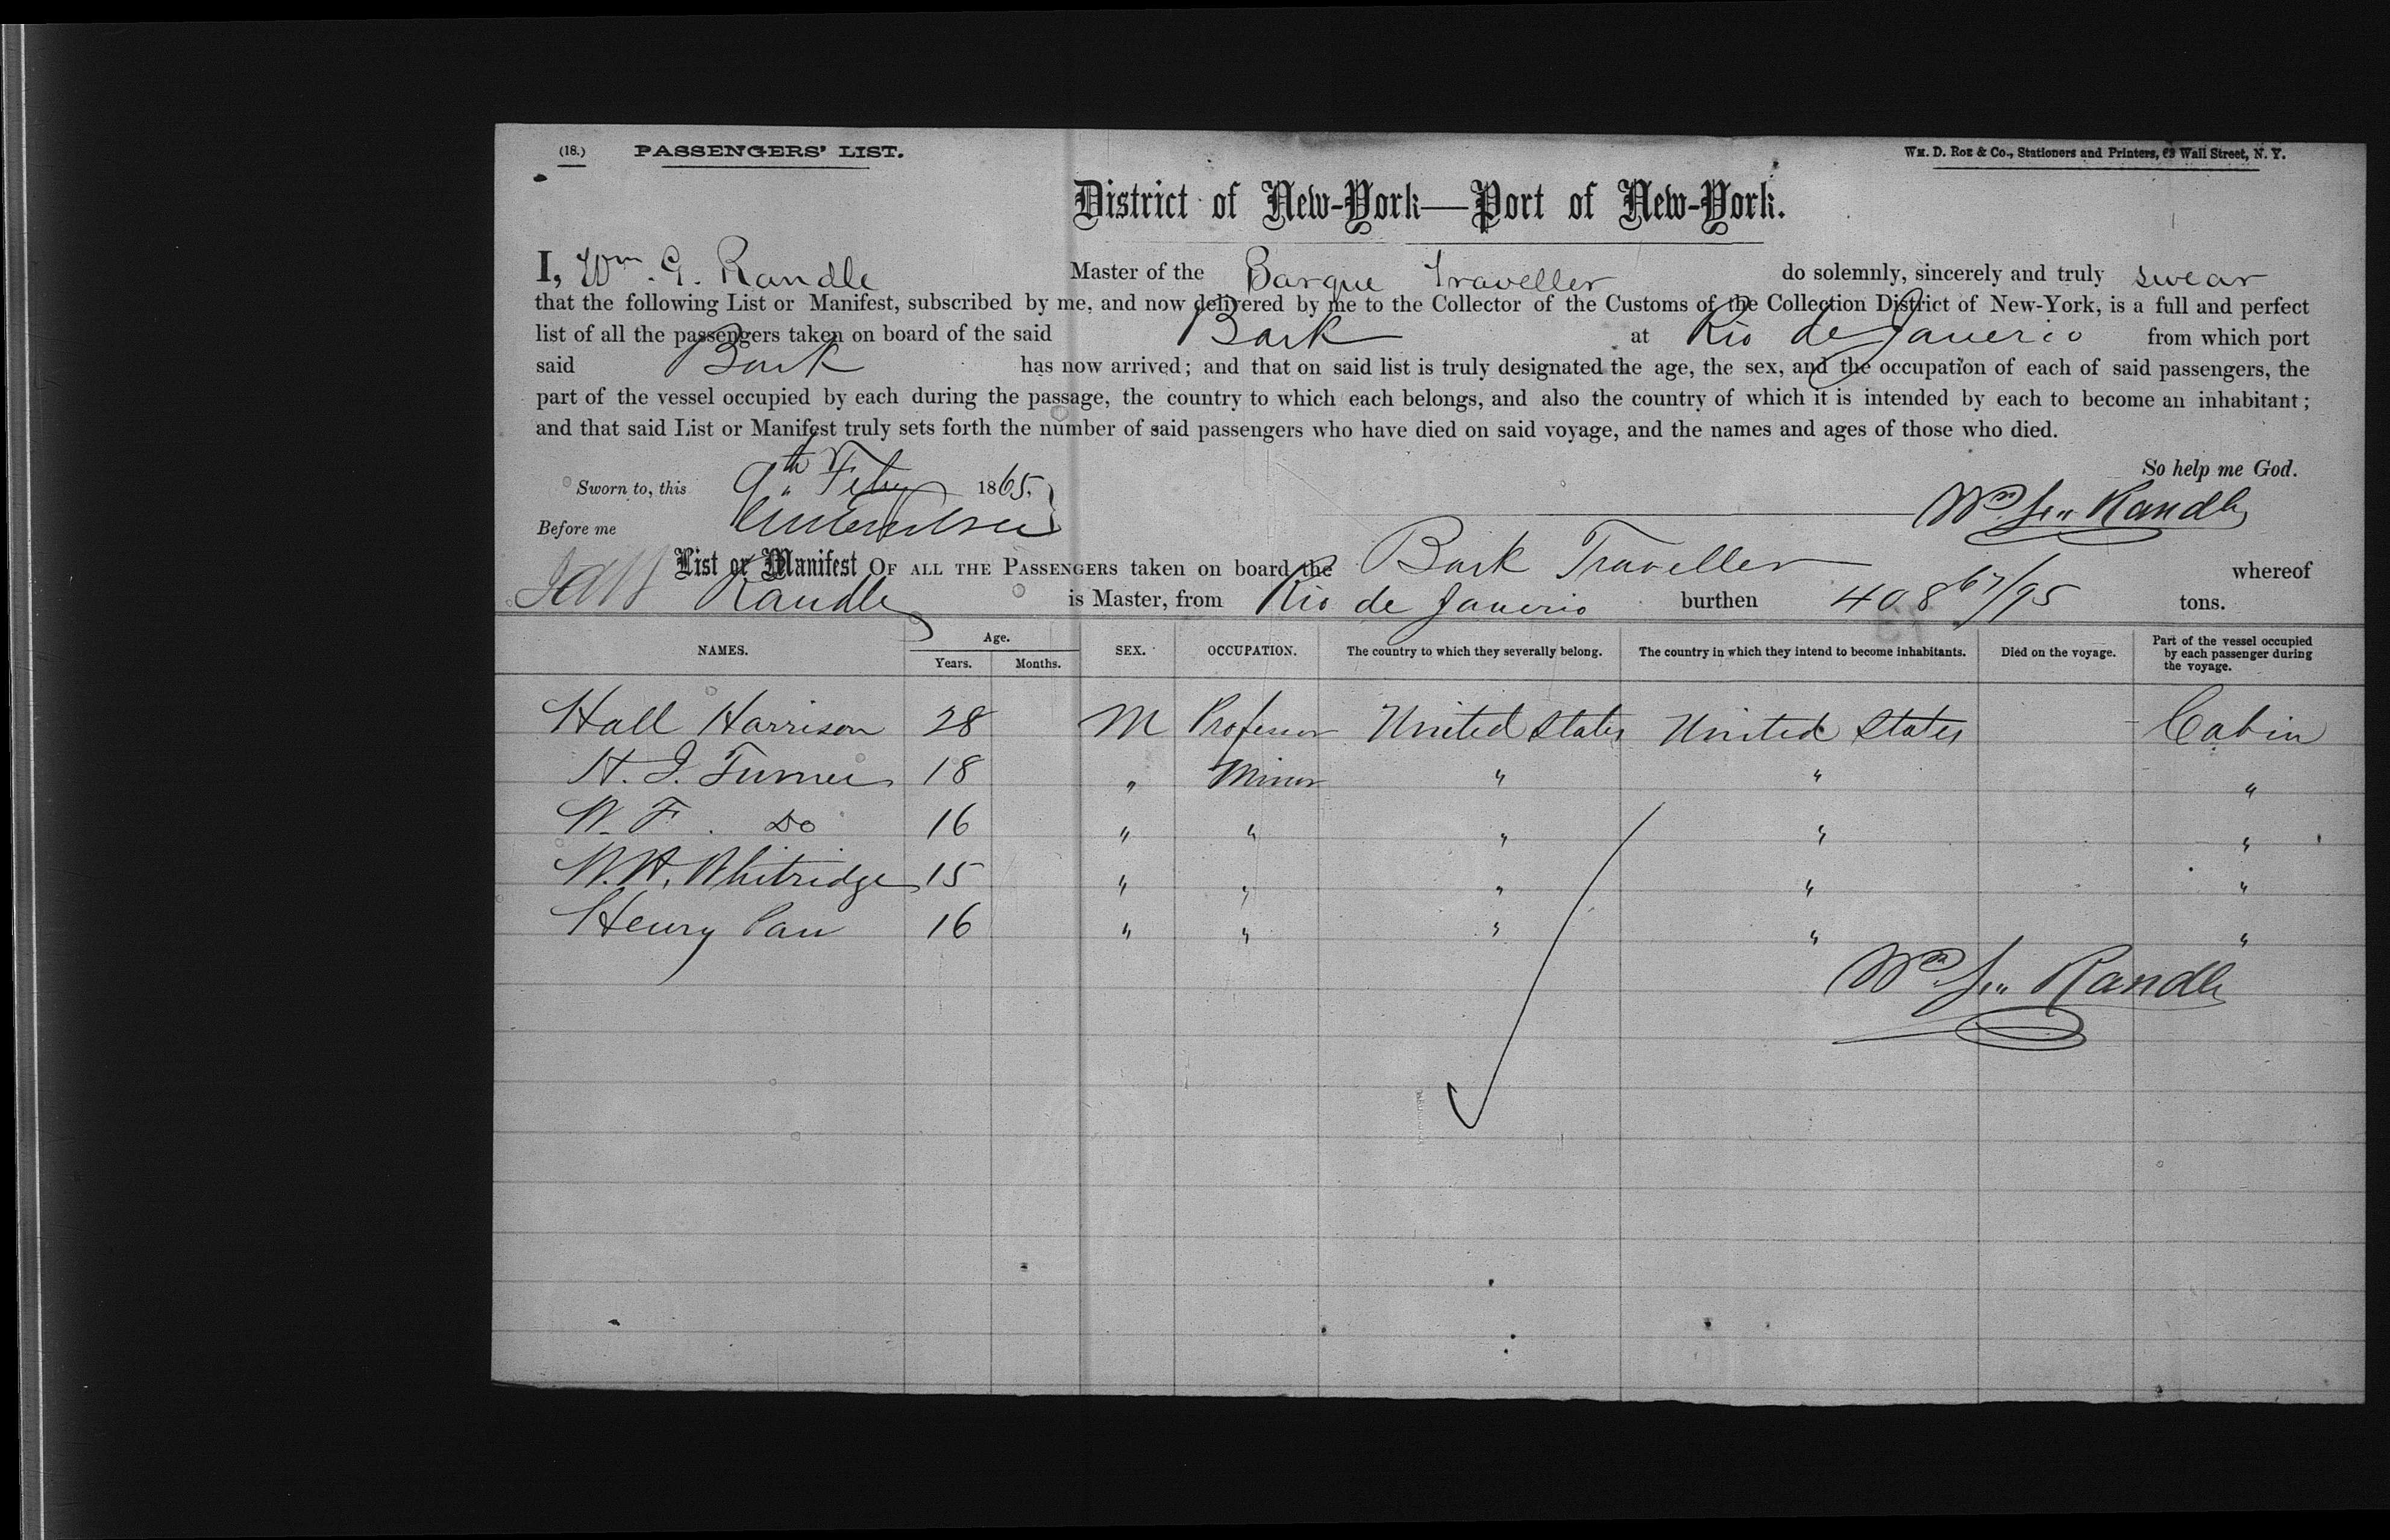 (18.) PASSENGERS' LIST. WM. D. ROE & Co., Stationers and Printers, 63 Wall Street, N. Y.
District of New-York—Port of New-York.
I, Wm. G. Randle Master of the Barque Traveller do solemnly, sincerely and truly swear
that the following List or Manifest, subscribed by me, and now delivered by me to the Collector of the Customs of the Collection District of New-York, is a full and perfect
list of all the passengers taken on board of the said Bark at Rio de Janerio from which port
said Bark has now arrived; and that on said list is truly designated the age, the sex, and the occupation of each of said passengers, the
part of the vessel occupied by each during the passage, the country to which each belongs, and also the country of which it is intended by each to become an inhabitant;
and that said List or Manifest truly sets forth the number of said passengers who have died on said voyage, and the names and ages of those who died.
So help me God.
Sworn to, this 9th Feby 1865.
Before me Wm Randle
List or Manifest OF ALL THE PASSENGERS taken on board the Bark Traveller whereof
Randle is Master, from Rio de Janerio burthen 408 67/95 tons.
NAMES. Age. Years. Months. SEX. OCCUPATION. The country to which they severally belong. The country in which they intend to become inhabitants. Died on the voyage. Part of the vessel occupied by each passenger during the voyage.
Hall Harrison 28 M Professor United States United States Cabin
H. J. Turner 18 " Minor " " "
W. F. Do 16 " " " " "
W. H. Whitridge 15 " " " " "
Henry 16 " " " " "
Wm Randle